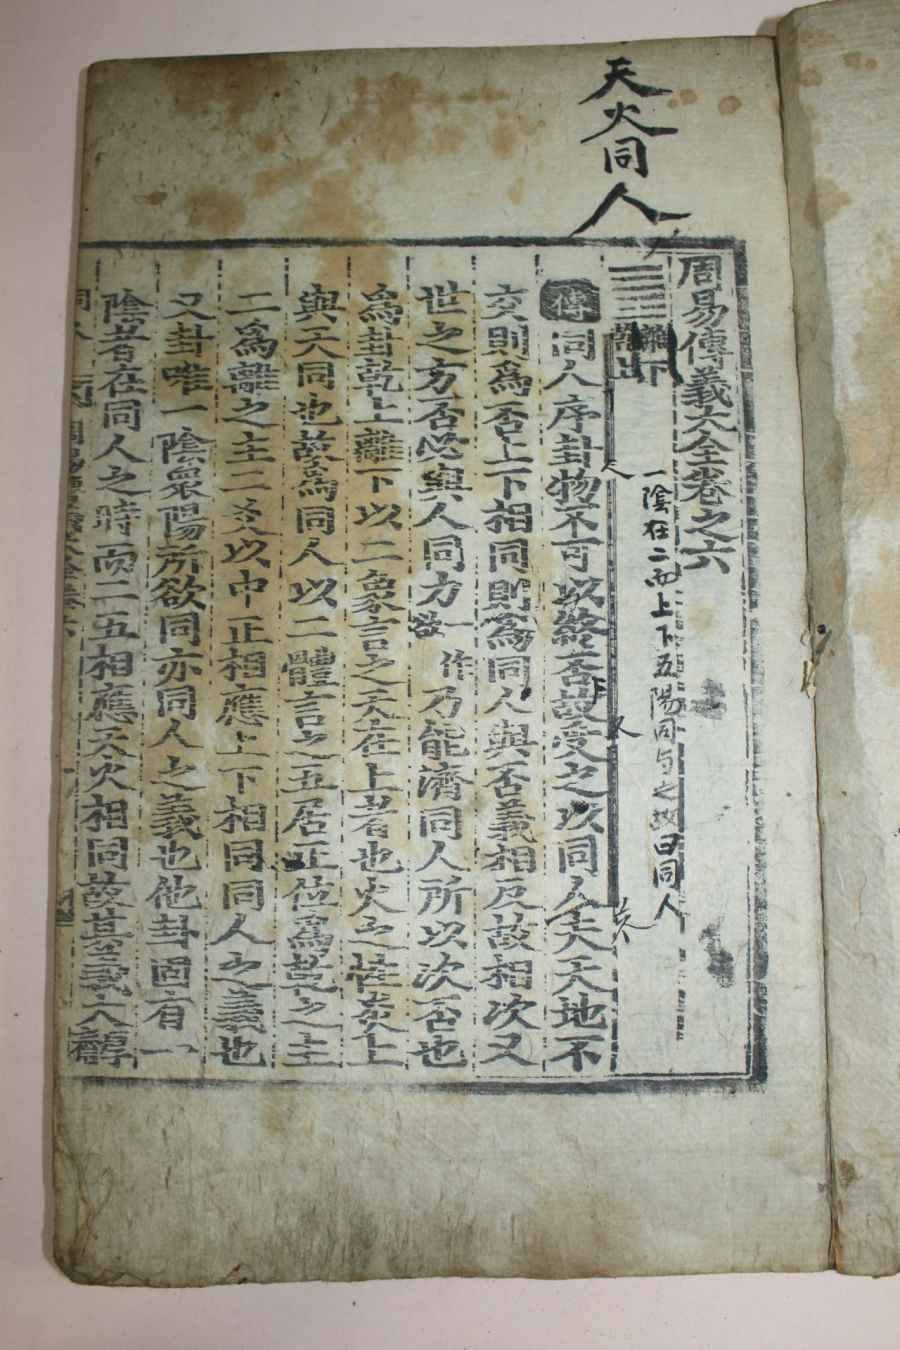 天火同人
周易傳義大全卷之六
離下
乾上
一陰在二而上下五陽同与之故曰同人
傳 同人序卦物不可以終否故受之以同人夫天地不
交則爲否上下相同則爲同人與否義相反故相次又
世之方否必與人同力 一作欲 乃能濟同人所以次否也
爲卦乾上離下以二象言之天在上者也火之性炎上
與天同也故爲同人以二體言之五居正位爲乾之主
二爲離之主二爻以中正相應上下相同同人之義也
又卦唯一陰衆陽所欲同亦同人之義也他卦固有一
陰者在同人之時而二五相應天火相同故其義大